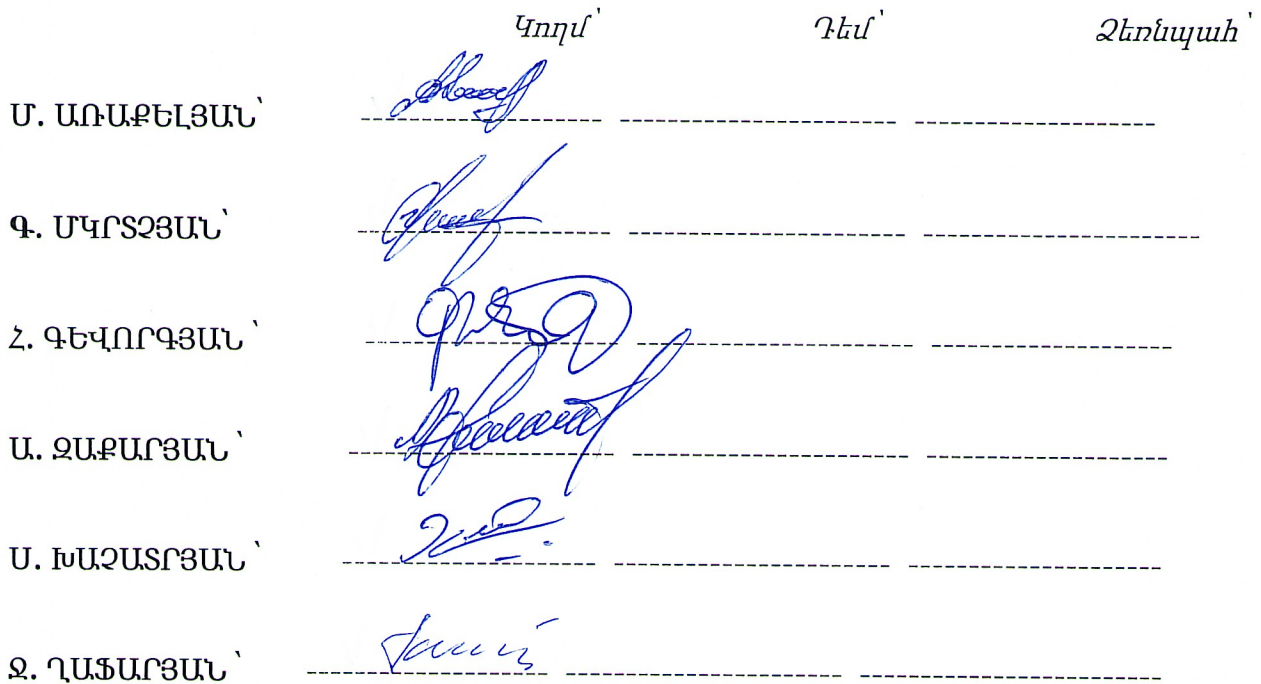 Կողմ՝ Դեմ՝ Ձեռնպահ՝
Մ. ԱՌԱՔԵԼՅԱՆ՝
Գ. ՄԿՐՏՉՅԱՆ՝
Հ. ԳԵՎՈՐԳՅԱՆ՝
Ա. ԶԱՔԱՐՅԱՆ՝
Ս. ԽԱՉԱՏՐՅԱՆ՝
Ջ. ՂԱՖԱՐՅԱՆ՝